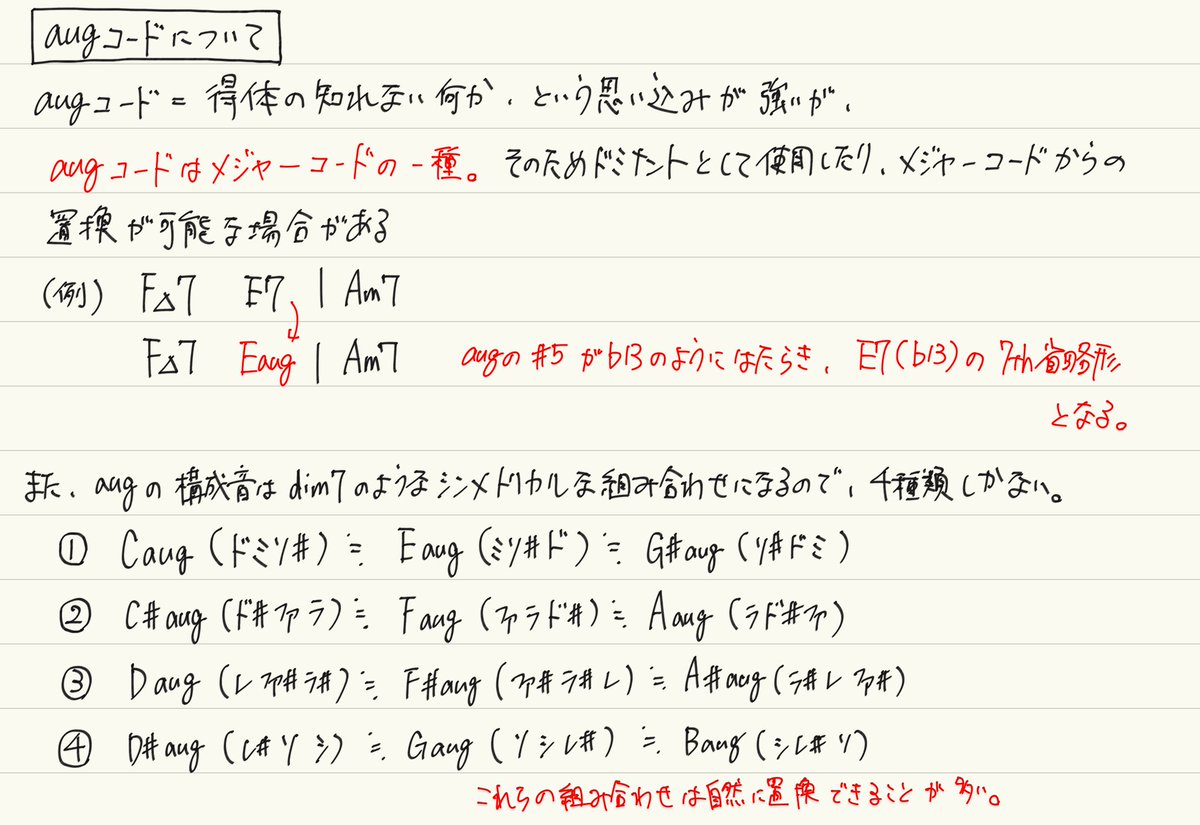 augコードについて
augコード = 得体の知れない何か、という思い込みが強いが、
augコードはメジャーコードの一種。そのためドミナントとして使用したり、メジャーコードからの
置換が可能な場合がある
(例) F△7 E7 | Am7
F△7 Eaug | Am7 augの#5がb13のようにはたらき、E7(b13)の7th省略形
となる。
また、augの構成音はdim7のようなシンメトリカルな組み合わせになるので、4種類しかない。
① Caug (ドミソ#) ≒ Eaug (ミソ#ド) ≒ G#aug (ソ#ドミ)
② C#aug (ド#ファラ) ≒ Faug (ファラド#) ≒ Aaug (ラド#ファ)
③ Daug (レファ#ラ#) ≒ F#aug (ファ#ラ#レ) ≒ A#aug (ラ#レファ#)
④ D#aug (レ#ソシ) ≒ Gaug (ソシレ#) ≒ Baug (シレ#ソ)
これらの組み合わせは自然に置換できることが多い。